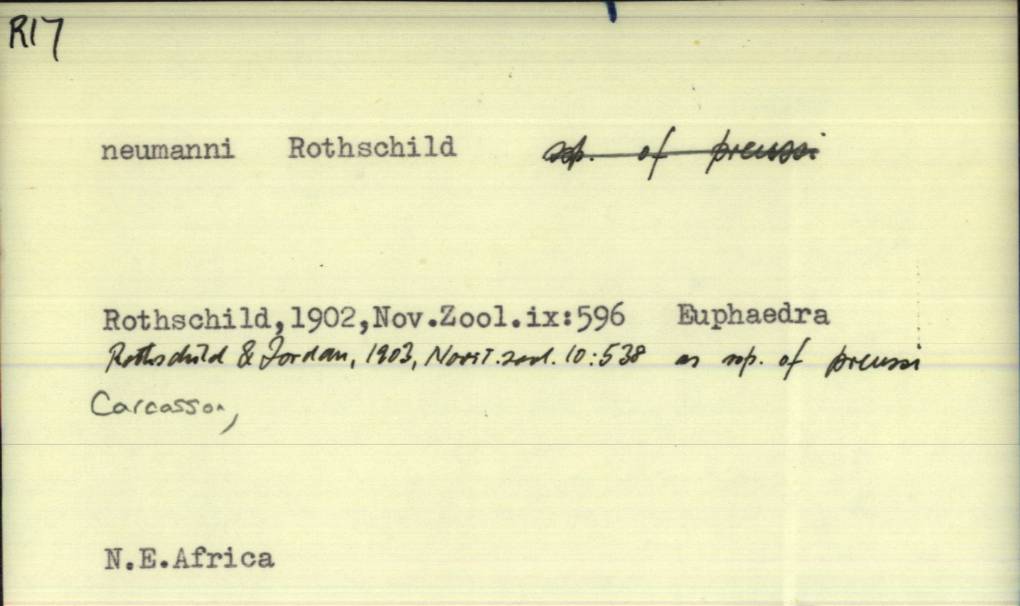 R17
neumanni Rothschild ssp. of preussi
Rothschild,1902,Nov.Zool.ix:596 Euphaedra
Rothschild & Jordan, 1903, Novit.zool. 10:538 as ssp. of preussi
Carcasson,
N.E.Africa